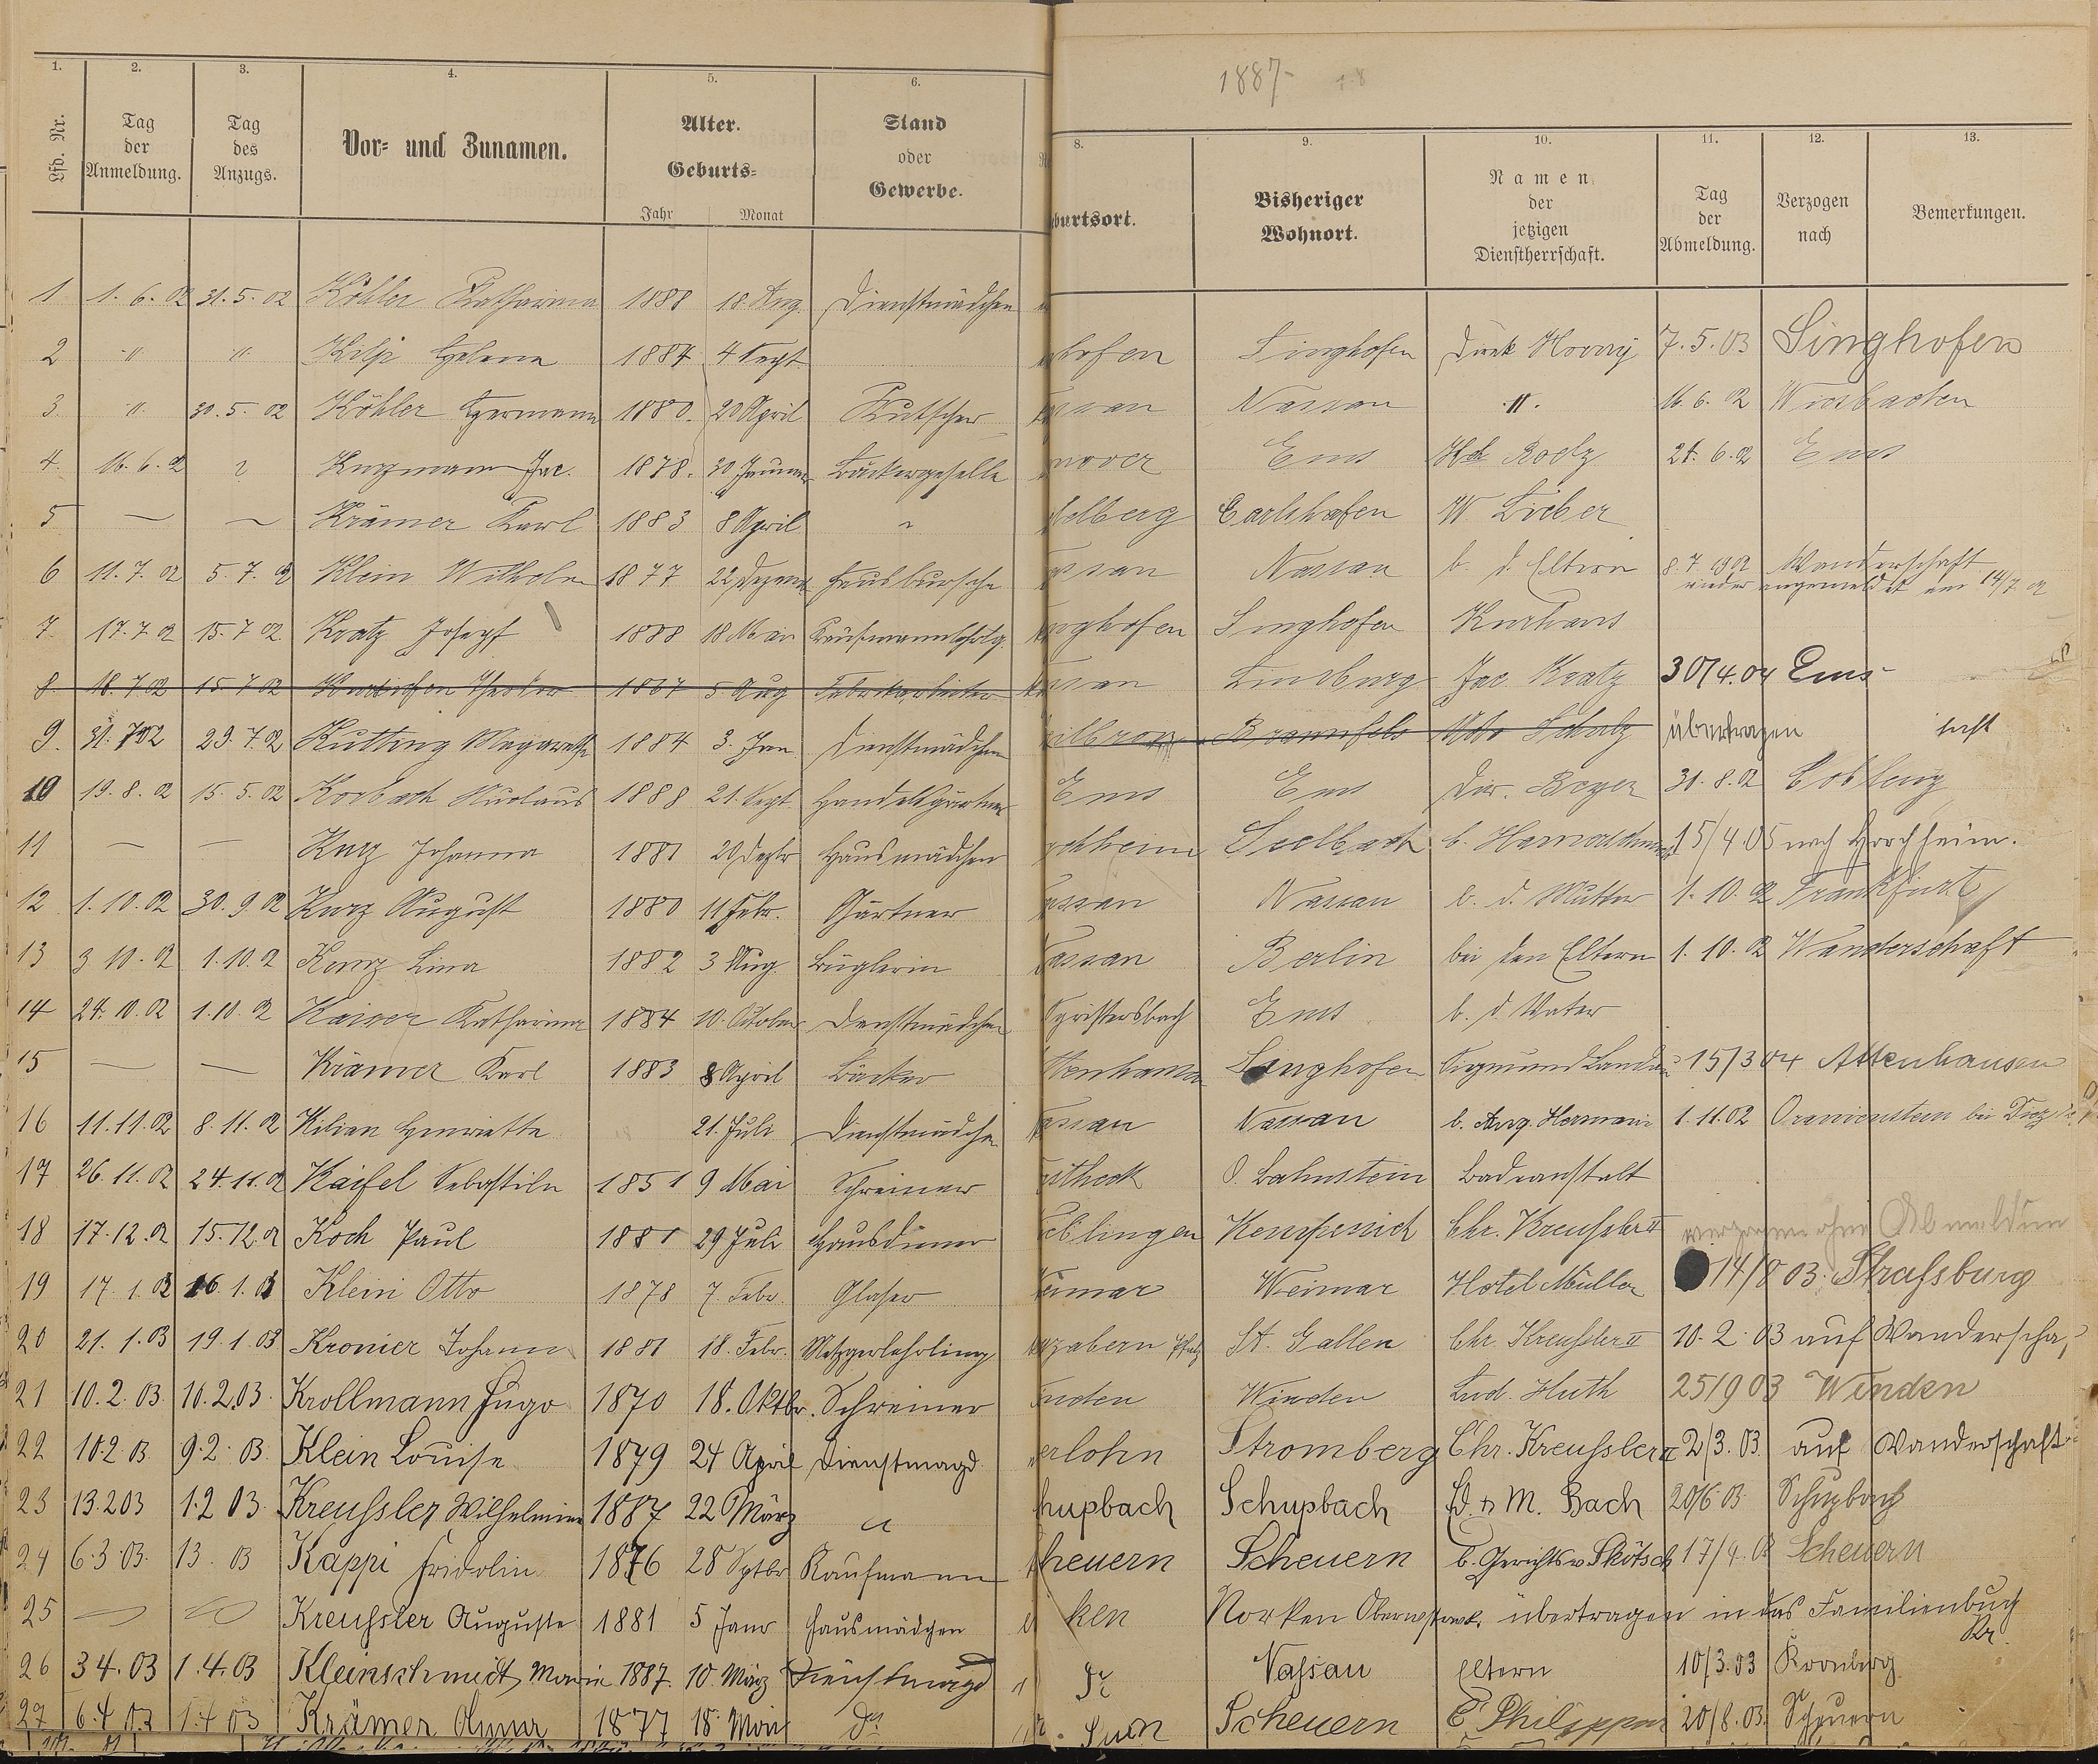 1887
1. 2. 3. 4. 5. 6. 8. 9. 10. 11. 12. 13.
Lfd. Nr. Tag der Anmeldung. Tag des Anzugs. Vor- und Zunamen. Alter. Geburts- Jahr Monat Stand oder Gewerbe.
burtsort. Bisheriger Wohnort. Namen der jetzigen Dienstherrschaft. Tag der Abmeldung. Verzogen nach Bemerkungen.
1 1. 6. 02 31. 5. 02 Köhler Katharina 1888 18. Aug. Dienstmädchen
2 " " Kilp Helene 1884 4 Sept
3 " 30. 5. 02 Köhler Hermann 1880. 20 April Kutscher
4. 16. 6. 02 Jac. 1878. 30 Januar Bäckergeselle
5 — — Krämer Karl 1883 8 April "
6 11. 7. 02 5. 7. 02 Klein Wilhelm 1877 22 Dezem Hausbursche
7 17. 7. 02 15. 7 02 Kratz Josef 1888 18 Mai
8. 18. 7 02 15 7 02 1867 5 Aug Fabrikarbeiter
9. 31. 7 02 29. 7. 02 Kutting 1884 3. Jan Dienstmädchen
10 19. 8. 02 15. 5. 02 Korbach 1888 21. Sept Handelsgärtner
11 — — Kurz Johanna 1881 Hausmädchen
12 1. 10. 02 30. 9. 02 Kurz August 1880 11 Febr. Gärtner
13 3 10. 02 1. 10. 02 Lina 1882 3 Aug Büglerin
14 24. 10. 02 1. 10. 02 Kaiser Katharina 1884 10. October Dienstmädchen
15 — — Krämer Karl 1883 8 April Bäcker
16 11. 11. 02 8. 11. 02 Kilian Henriette 21. Juli Dienstmädchen
17 26. 11. 02 24. 11. 02 Kaifel 1851 9 Mai Schreiner
18 17. 12. 02 15. 12. 02 Koch Paul 1881 29 Juli Hausdiener
19 17. 1. 03 16. 1. 03 Klein Otto 1878 7. Febr. Glaser
20 21. 1. 03 19. 1. 03 Kronier Johann 1881 18. Febr. Metzgerlehrling
21 10. 2. 03. 10. 2. 03. Krollmann Hugo 1870 18. Oktbr. Schreiner
22 10. 2. 03 9. 2. 03. Klein Louise 1879 24 April Dienstmagd
23 13. 2 03 1. 2 03. Kreußler Wilhelmine 1887 22 März "
24 6. 3. 03. 1 3. 03 Kappi Fridolin 1876 28 Sptbr Kaufmann
25 Kreußler Auguste 1881 5 Janr Hausmädchen
26 3 4. 03 1. 4. 03 Kleinschmidt, Marie 1887. 10. März Dienstmagd
27 6. 4 03 1. 4 03 Krämer Anna 1877 18. do
hofen Singhofen 7. 5. 03 Singhofen
ssau Nassau " 16. 6. 02 Wiesbaden
nover Ems 21. 6. 02 Ems
elberg Carlshafen W. Lieber
ssau Nassau b. d. Eltern 8. 7. 1902 Wanderschaft
wieder angemeldet am 14/7 02
nghofen Singhofen Kurhaus
ssau Limburg Jac Kratz 30/4. 04 Ems
ilbron Braunfels Scholz übertragen
Ems Ems Dir. Beyer 31. 8. 02 Coblenz
chheim Seelbach 15/4. 05 nach Horchheim.
assau Nassau b. d. Mutter 1. 10. 02 Frankfurt
Nassau Berlin bei den Eltern 1. 10. 02 Wanderschaft
Ems b. d. Vater
ttenhausen Singhofen Sigmund Landau 15/3 04 Attenhausen
assau Nassau b. Aug. Hermann 1. 11. 02 Oranienstein bei Diez
O. Lahnstein Badeanstalt
blingen Kempenich Chr. Kreußler II verzogen ohne Abmeldun
eimar Weimar Hotel Müller 14/8 03. Straßburg
gzabern Pfalz St. Gallen Chr. Kreußler II 10. 2. 03 auf Wanderscha
inden Winden Lud. Huth 25/9 03 Winden
erlohn Stromberg Chr. Kreußler II 2/3. 03. auf Wanderschaft
hupbach Schupbach M. Bach 20/6 03. Schupbach
heuern Scheuern b. Skötsch 17/4. 03 Scheuern
ken Norken übertragen in das Familienbuch
Kr.
Nassau Eltern 10/3. 03 Kronberg
Scheuern 20/8. 03. Scheuern